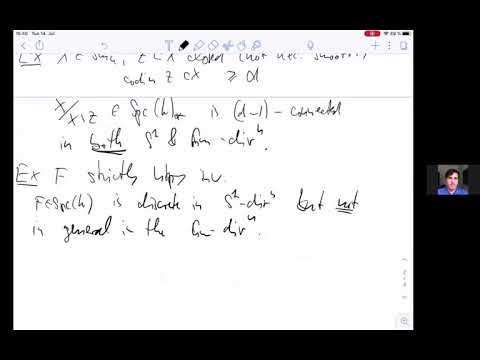 Ex X ∈ Sm_k, Z ⊂ X closed (not nec. smooth)
codim Z ⊂ X ≥ d
X/X\Z ∈ Spc(k)_* is (d-1)-connected
in both S^1 & Gm-div^n.
Ex F strictly htpy inv.
F∈Spc(k) is discrete in S^1-div^n but not
in general in the Gm-div^n.